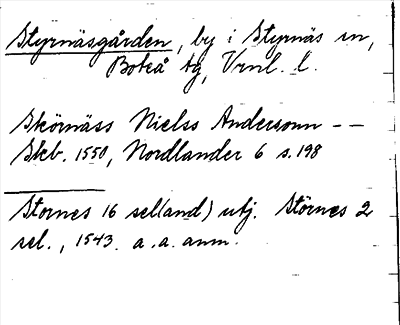 Styrnäsgården, by i Styrnäs sn,
Boteå tg, Vrnl. l.
Skörnäss Nielss Andersonn --
Skb. 1550, Nordlander 6 s. 198
Stornes 16 sel(and) utj. Störnes 2
sel., 1543. a. a. anm.